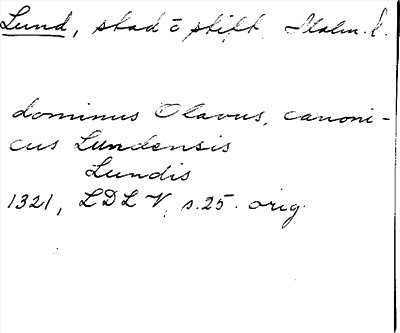 Lund, stad o stift. Malm. l.
dominus Olavus, canoni-
cus Lundensis
Lundis
1321, LDL V, s. 25. orig.